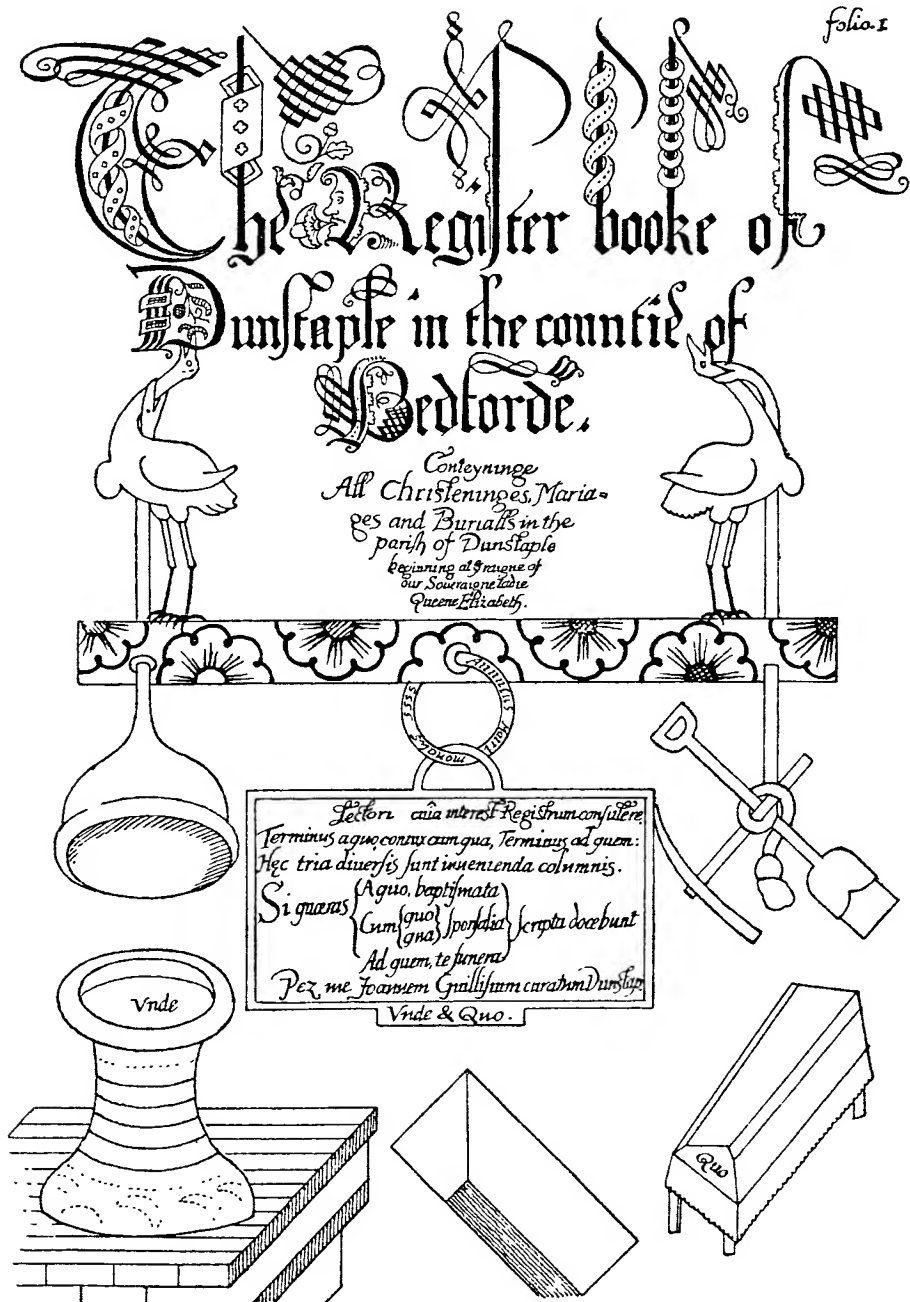 folio. 1
The Register booke of
Dunstaple in the countie of
Bedforde.
Conteyninge
All Christeninges, Maria=
ges and Burialls in the
parish of Dunstaple
beginning at yͤ raigne of
our Soveraigne Ladie
Queene Elizabeth.
Annulus
Lectori cuia interest Registrum consulere
Terminus a quo, cum qua, Terminus ad quem:
Hęc tria diuersis sunt inuenienda columnis.
A quo, baptismata
Si quæras Cum quo sponsalia scripta docebunt
qua
Ad quem, te funera
Per me Joannem curatum Dunstap
Vnde & Quo.
Vnde
Quo